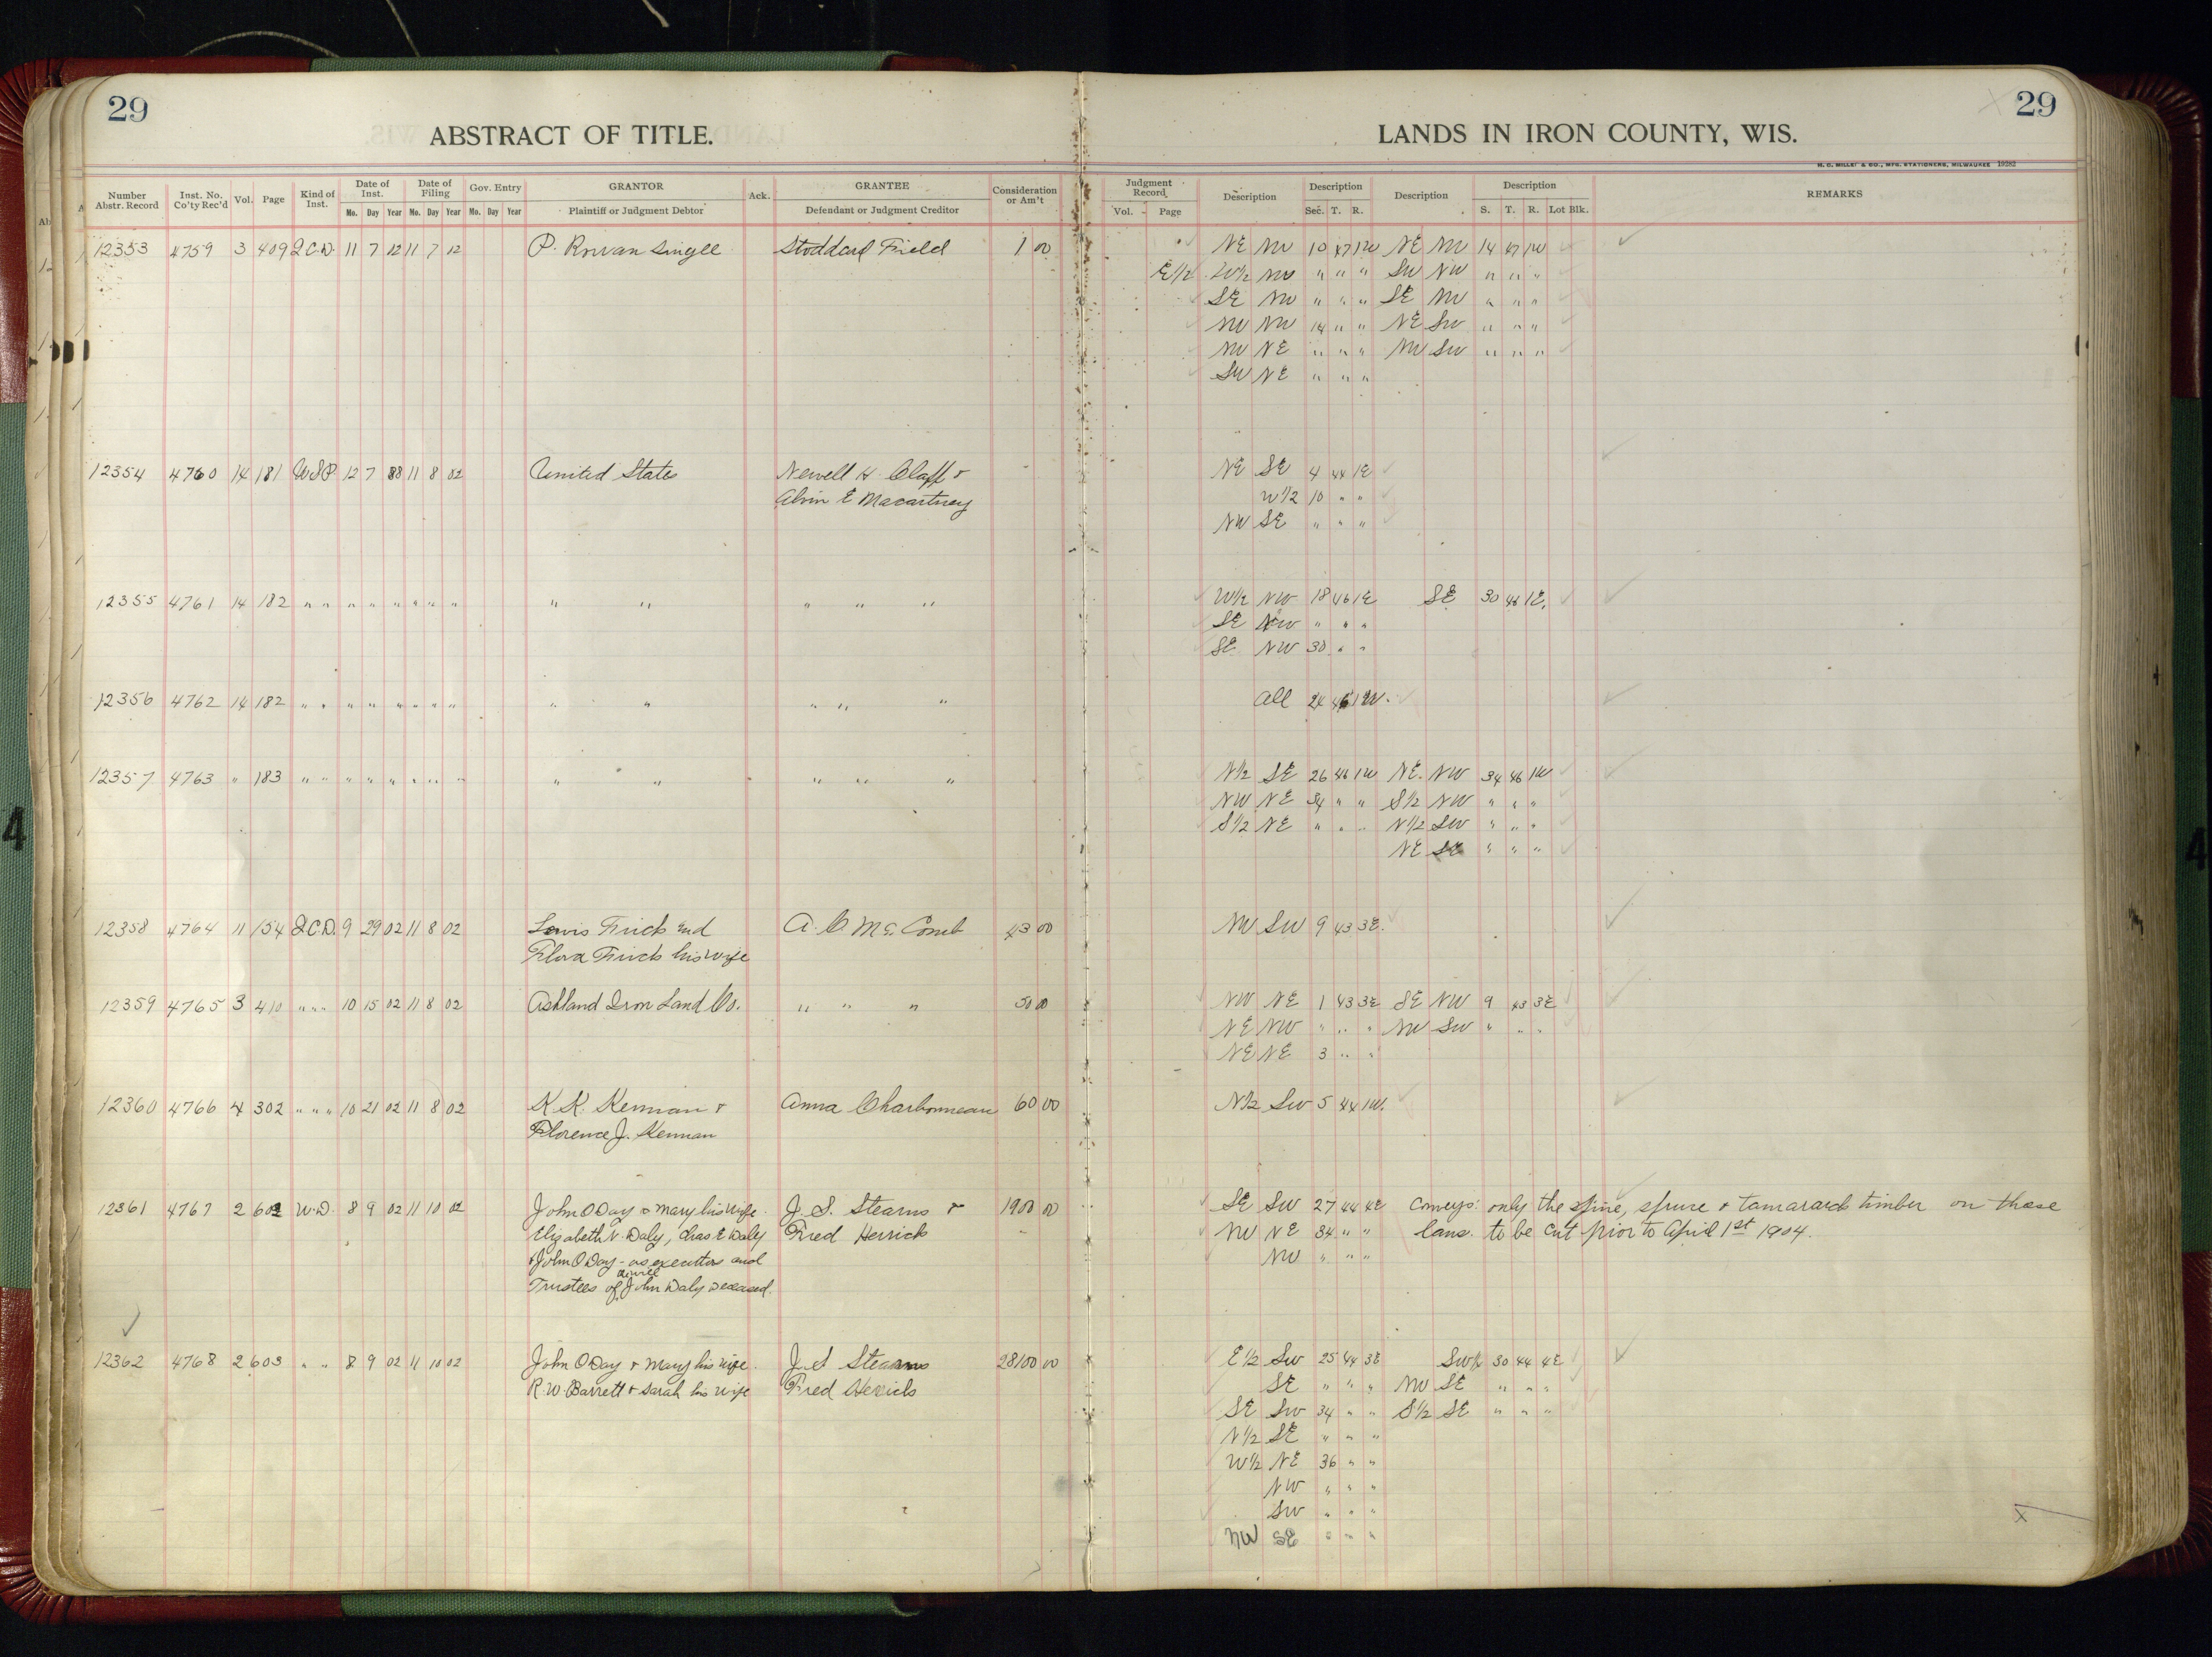 29
29
ABSTRACT OF TITLE.
LANDS IN IRON COUNTY, WIS.
H. C. MILLER & CO., MFG. STATIONERS, MILWAUKEE 19282
Number Abstr. Record Inst. No. Co'ty Rec'd Vol. Page Kind of Inst. Date of Inst. Date of Filing Gov. Entry GRANTOR Ack. GRANTEE Consideration or Am't Judgment Record Description Description Description Description REMARKS
Mo. Day Year Mo. Day Year Mo. Day Year Plaintiff or Judgment Debtor Defendant or Judgment Creditor Vol. Page Sec. T. R. S. T. R. Lot Blk.
12353 4759 3 409 Q.C.D. 11 7 12 11 7 12 P. Rowan Single Stoddard Field 1 00 NE NW 10 47 1W NE NW 14 47 1W
E 1/2 W1/2 NW " " " SW NW " " "
SE NW " " " SE NW " " "
NW NW 14 " " NE SW " " "
NW NE " " " NW SW " " "
SW NE " " "
12354 4760 14 181 U.S.P. 12 7 88 11 8 02 United States Newell H. Claff & NE SE 4 44 1E
Alvin E Macartney W1/2 10 " "
NW SE " " "
12355 4761 14 182 " " " " " " " " " " " " " W1/2 NW 18 46 1E SE 30 46 1E.
SE NW " " "
SE NW 30 " "
12356 4762 14 182 " " " " " " " " " " " " " All 24 46 1W.
12357 4763 " 183 " " " " " " " " " " " " " N1/2 SE 26 46 1W NE NW 34 46 1W
NW NE 34 " " S1/2 NW " " "
S1/2 NE " " " N1/2 SW " " "
NE SE " " "
12358 4764 11 154 Q.C.D. 9 29 02 11 8 02 Lewis Frick and A. C. McComb 43 00 NW SW 9 43 3E.
Flora Frick his wife
12359 4765 3 410 " " " 10 15 02 11 8 02 Ashland Iron Land Co. " " " 50 00 NW NE 1 43 3E SE NW 9 43 3E
NE NW " " " NW SW " " "
NE NE 3 " "
12360 4766 4 302 " " " 10 21 02 11 8 02 K. K. Kennan & Anna Charbonneau 60 00 N1/2 SW 5 44 1W.
Florence J. Kennan
12361 4767 2 602 W.D. 8 9 02 11 10 02 John O Day & Mary his wife. J. S. Stearns & 1900 00 SE SW 27 44 4E Conveys: only the pine, spruce & tamarack timber on those
Elizabeth N. Daly, Chas E Daly Fred Herrick NW NE 34 " " lans. to be cut prior to April 1st 1904.
& John O Day - as executors and NW " " "
Trustees of will John Daly deceased.
12362 4768 2 603 " " 8 9 02 11 10 02 John O Day & Mary his wife. J. S Stearns 28100 00 E1/2 SW 25 44 3E SW1/4 30 44 4E
R. W. Barrett & Sarah his wife Fred Herrick SE " " " NW SE " " "
SE SW 34 " " S1/2 SE " " "
N1/2 SE " " "
W1/2 NE 36 " "
NW " " "
SW " " "
NW SE " " "
4
4